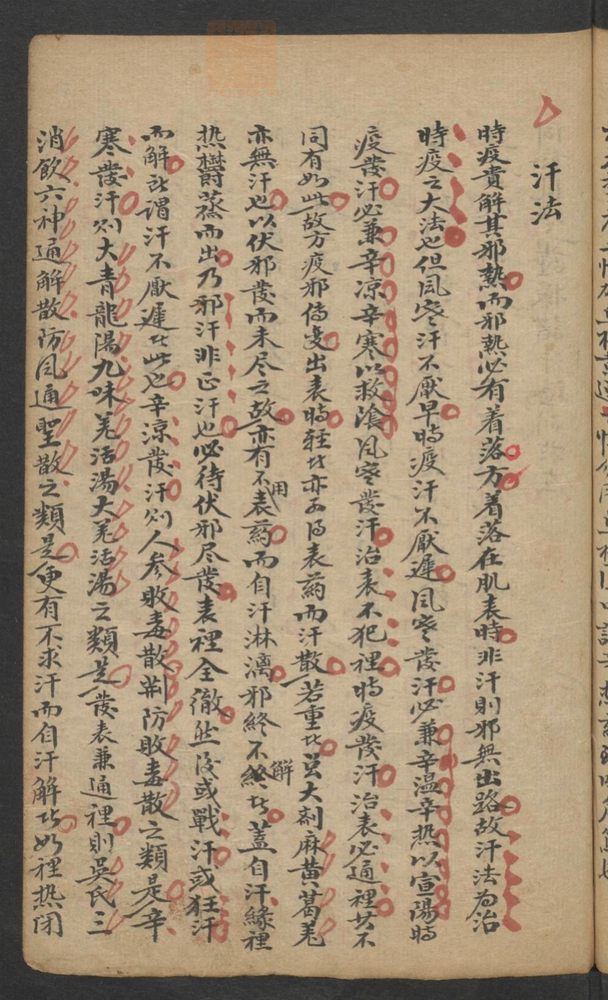 汗法
時疫貴解其邪熱而邪熱必有着落方着落在肌表時非汗則邪無出路故汗法为治
時疫之大法也但风寒汗不厭早時疫汗不厭遲风寒發汗必兼辛温辛热以宣陽時
疫發汗必兼辛凉辛寒以救陰风寒發汗治表不犯裡時疫發汗治表必通裡其不
同有如此故方疫邪傳变出表時軽者亦可得表药而汗散若重者虽大剤麻黄葛羌
亦無汗也以伏邪發而未尽之故亦有不用表药而自汗淋漓邪終不解者蓋自汗緣裡
热欎蒸而出乃邪汗非正汗也必待伏邪尽發表裡全徹然後或戰汗或狂汗
而解所謂汗不厭遲者此也辛涼發汗则人参敗毒散荆防敗毒散之類是辛
寒發汗则大青龍湯九味羌活湯大羌活湯之類是發表兼通裡則吳氏三
消飲六神通解散防风通聖散之類是更有不求汗而自汗解者如裡热闭